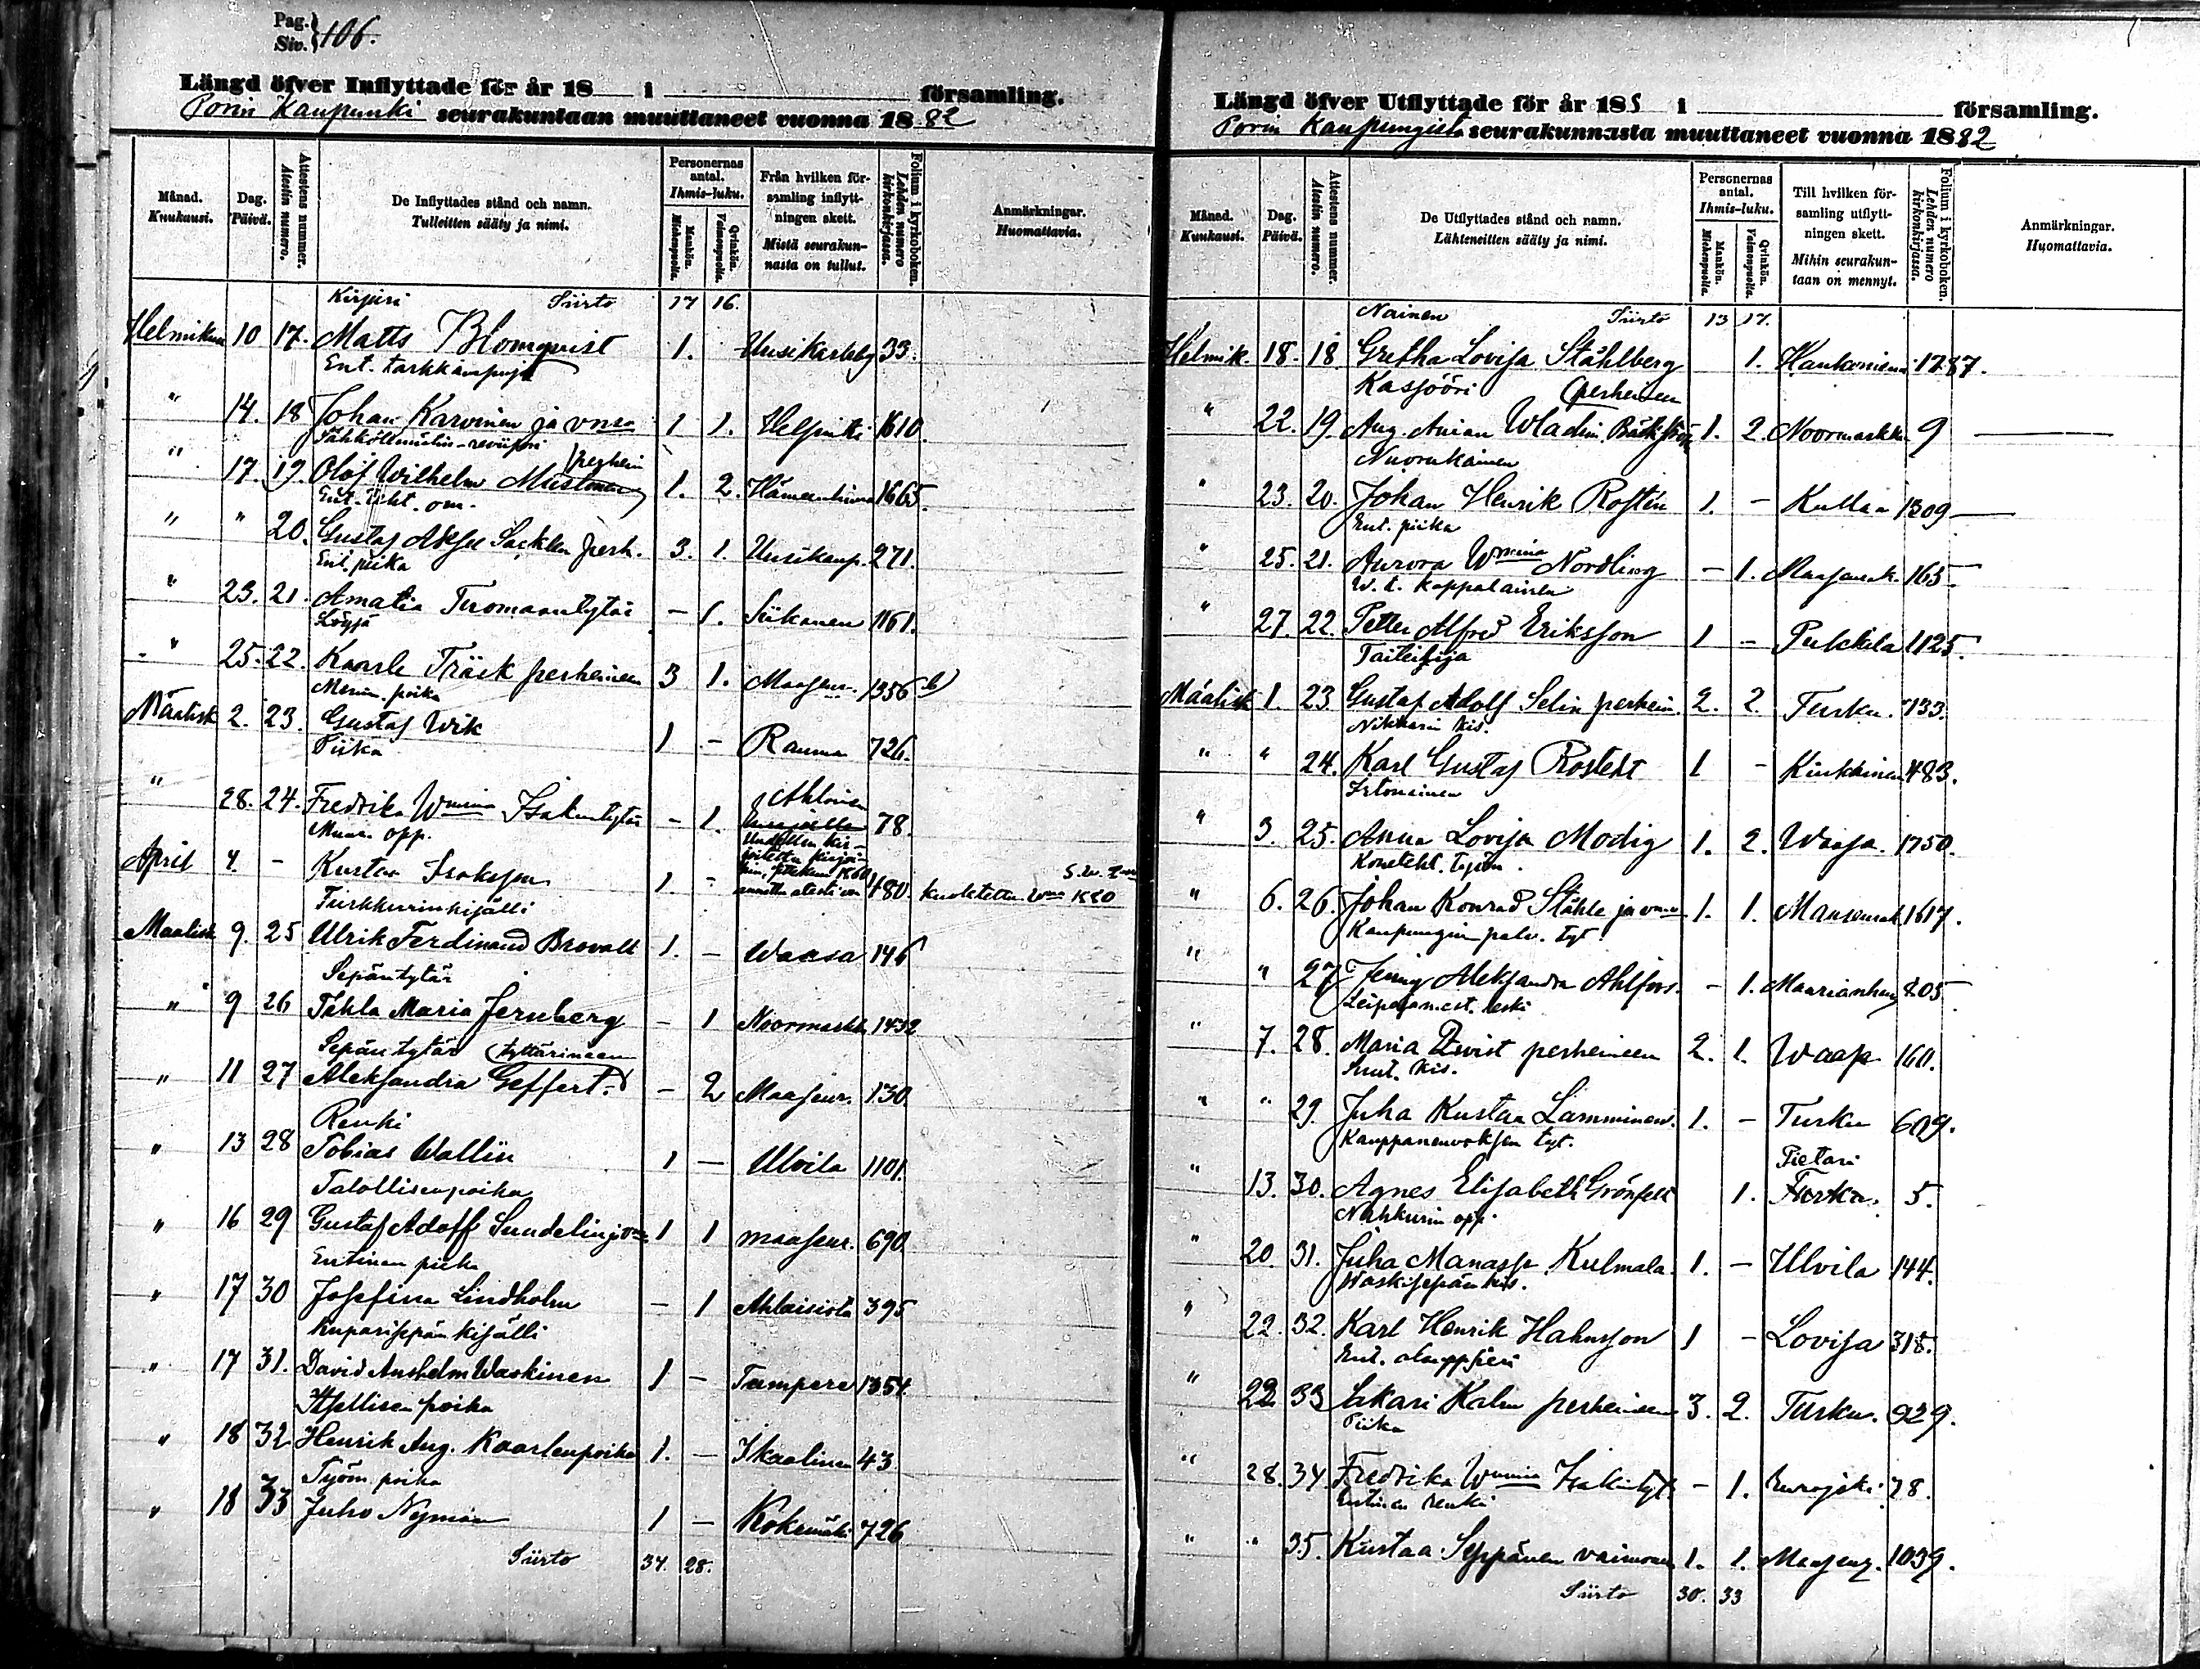 Pag.
Siv. } 106.
Längd öfver Inflyttade för år 18 i församling.
Porin Kaupunki seurakuntaan muuttaneet vuonna 1882
Månad. Kuukausi.
Dag. Päivä.
Attestens nummer. Atestin numero.
De Inflyttades stånd och namn.
Tulleitten sääty ja nimi.
Personernas antal.
Ihmis-luku.
Mankön. Miehenpuolia.
Qvinkön. Vaimonpuolia.
Från hvilken församling inflyttningen skett.
Mistä seurakunnasta on tullut.
Folium i kyrkoboken. Lehden numero kirkonkirjassa.
Anmärkningar.
Huomattavia.
Kirjuri Siirto 17 16.
Helmikuu 10 17. Matts Blomqvist 1. Uusikarleby 33.
Ent.
" 14. 18 Johan Karvinen ja vmo 1 1. Helsinki 1610.
" 17. 19. Olof Wilhelm Mustonen perhein 1. 2. Hämeenlinna 1665.
" " 20. Gustaf Aksel Sacklen perh. 3. 1. Uusikaup. 271.
Ent. piika
" 23. 21. Amalia Tuomaantytär – 1. Siikanen 1161.
" 25. 22. Kaarle Träsk perheineen 3 1. Maaseur. 1356 b)
Merim. poika
Maalisk 2. 23. Gustaf Wik 1 – Rauma 726.
Piika
" 28. 24. Fredrika Wmina Isakintytär – 1. Ahlainen Eurajoelle 78.
Muur. opp.
April 4. – Kustaa Isaksson 1. – 480. kuoletettu 1880
Turkkurinkisälli
Maalisk 9. 25 Ulrik Ferdinand Brovall 1. – Waasa 146
Sepäntytär
" 9 26 Tahla Maria Jernberg – 1 Noormarkku 1432
Sepäntytär tyttärineen
" 11 27 Aleksandra Geffert. – 2 Maaseur. 130.
Renki
" 13 28 Tobias Wallin 1 – Ulvila 1101.
Talollisenpoika
" 16 29 Gustaf Adolf Sundelin 1 1 maaseur. 690
Entinen piika
" 17 30 Josefina Lindholm – 1 Ahlaisista 395
Kuparisepän kisälli
" 17 31. David Anshelm Waskinen 1 – Tampere 1354.
Itsellisen poika
" 18 32 Henrik Aug. Kaarlenpoika 1. – Ikaalinen 43
Työm. poika
" 18 33 Juho Nyman 1 – Kokemäki 726
Siirto 34. 28.
Längd öfver Utflyttade för år 188 i församling.
Porin Kaupungista seurakunnasta muuttaneet vuonna 1882
Månad. Kuukausi.
Dag. Päivä.
Attestens nummer. Atestin numero.
De Utflyttades stånd och namn.
Lähteneitten sääty ja nimi.
Personernas antal.
Ihmis-luku.
Mankön. Miehenpuolia.
Qvinkön. Vaimonpuolia.
Till hvilken församling utflyttningen skett.
Mihin seurakuntaan on mennyt.
Folium i kyrkoboken. Lehden numero kirkonkirjassa.
Anmärkningar.
Huomattavia.
Nainen Siirto 13 17.
Helmik. 18. 18 Gretha Lovisa Ståhlberg 1. Hankoniemi 1787.
Kasööri perheineen
" 22. 19. Aug. Anian Wladim. Bäckström 1. 2. Noormarkku 9
Nuorukainen
" 23. 20. Johan Henrik Rostén 1. – Kullaa 1309
Ent. piika
" 25. 21. Aurora Wmina Nordling – 1. Maaseurak. 165
W. t. kappalainen
" 27. 22. Petter Alfred Eriksson 1 – Pukkila 1125.
Taiteisija
Maalisk 1. 23. Gustaf Adolf Selin perhein. 2. 2. Turku. 733.
Nikkarin kis.
" " 24. Karl Gustaf Rostedt 1 – 483.
Irtonainen
" 3. 25. Anna Lovisa Modig 1. 2. Waasa. 1750.
Konetehd. työm.
" 6. 26. Johan Konrad Ståhle ja vmo 1. 1. 1617.
Kaupungin palv. tyt.
" " 27 Jenny Aleksandra Ahlfors. – 1. Maarianham 805
Leipurimest. leski
" 7. 28. Maria Qvist perheineen 2. 1. Waasa 160.
" " 29. Juha Kustaa Lamminen. 1. – Turku 609.
Kauppaneuvoksen tyt.
" 13. 30. Agnes Elisabeth Grönfelt 1. Pietari Turku. 5.
Nahkurin opp.
" 20. 31. Juha Manasse Kulmala. 1. – Ulvila 144.
Waskisepän kis.
" 22. 32. Karl Henrik Hahnsson 1 – Lovisa 318.
Ent.
" 22. 33 Sakari Kalm perheineen 3. 2. Turku. 929.
Piika
" 28. 34. Fredrika Wmina Isakintyt. – 1. Eurajoki 78.
Entinen renki
" " 35. Kustaa Seppänen vaimoneen 1. 1. Maaseur. 1039.
Siirto 30. 33